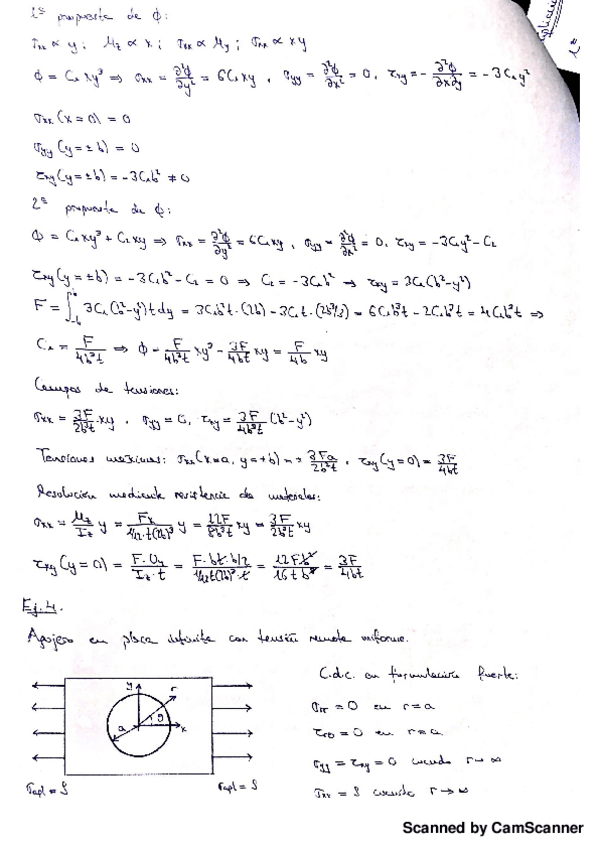 1ª propuesta de ϕ:
σxx ∝ y, Mz ∝ x; σxx ∝ My; σxx ∝ xy
ϕ = C₁xy³ ⟹ σxx = ∂²ϕ/∂y² = 6C₁xy, σyy = ∂²ϕ/∂x² = 0, τxy = -∂²ϕ/∂x∂y = -3C₁y²
σxx(x=0) = 0
σyy(y=±b) = 0
τxy(y=±b) = -3C₁b² ≠ 0
2ª propuesta de ϕ:
ϕ = C₁xy³ + C₂xy ⟹ σxx = ∂²ϕ/∂y² = 6C₁xy, σyy = ∂²ϕ/∂x² = 0, τxy = -3C₁y² - C₂
τxy(y=±b) = -3C₁b² - C₂ = 0 ⟹ C₂ = -3C₁b² ⟹ τxy = 3C₁(b²-y²)
F = ∫ 3C₁(b²-y²)t dy = 3C₁b²t·(2b) - 3C₁t·(2b³/3) = 6C₁b³t - 2C₁b³t = 4C₁b³t ⟹
C₁ = F/4b³t ⟹ ϕ = F/4b³t xy³ - 3F/4bt xy = F/4b xy
Campos de tensiones:
σxx = 3F/2b³t xy, σyy = 0, τxy = 3F/4b³t (b²-y²)
Tensiones máximas: σxx(x=a, y=+b) = 3Fa/2b²t, τxy(y=0) = 3F/4bt
Resolución mediante resistencia de materiales:
σxx = Mz/Iz y = Fx/1/12·t(2b)³ y = 12F/8b³t xy = 3F/2b³t xy
τxy(y=0) = F·Qy/Iz·t = F·bt·b/2/1/12t(2b)³·t = 12Fb²/16tb³ = 3F/4bt
Ej. 4.
Agujero en placa infinita con tensión remota uniforme.
C.d.c. en formulación fuerte:
σrr = 0 en r=a
τrθ = 0 en r=a
σyy = τxy = 0 cuando r→∞
σxx = S cuando r→∞
y
r
θ
a
x
σapl = S
σapl = S
Scanned by CamScanner